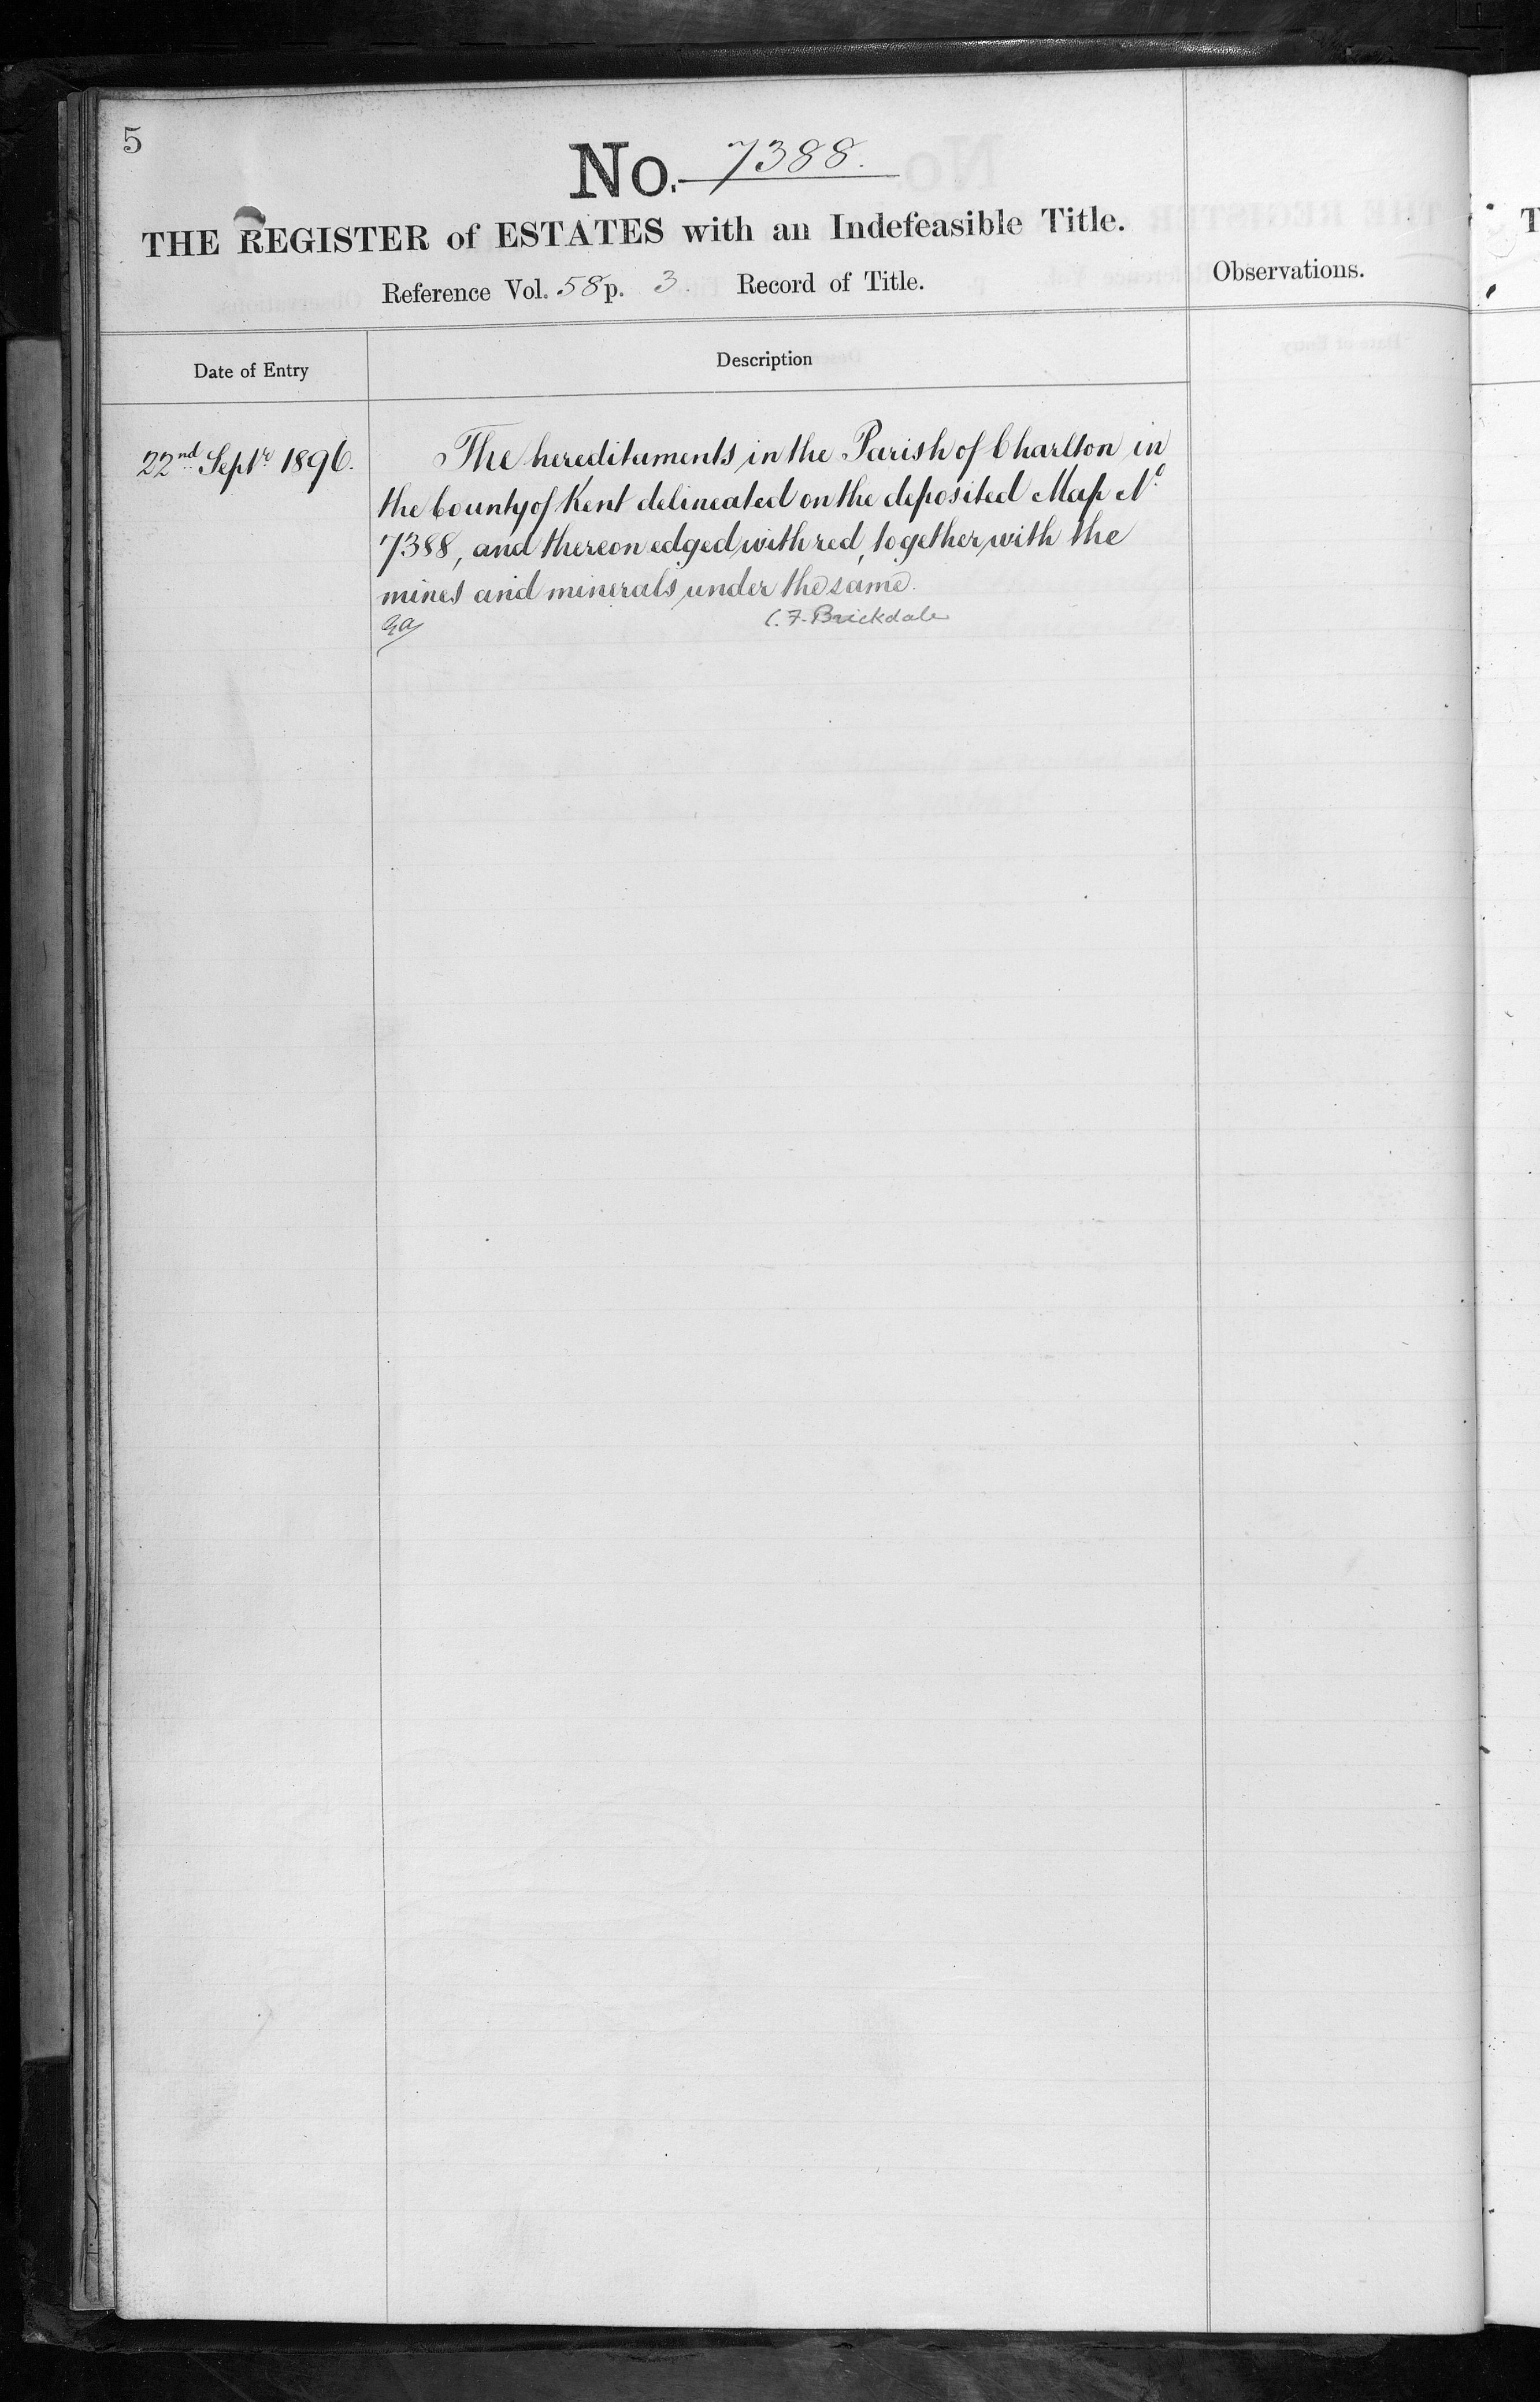 5
No. 7388.
THE REGISTER of ESTATES with an Indefeasible Title.
Reference Vol. 58 p. 3. Record of Title.
Observations.
Date of Entry
Description
22nd Septr 1896.
The hereditaments in the Parish of Charlton in
the County of Kent delineated on the deposited Map No.
7388, and thereon edged with red, together with the
mines and minerals under the same.
C. F. Brickdale